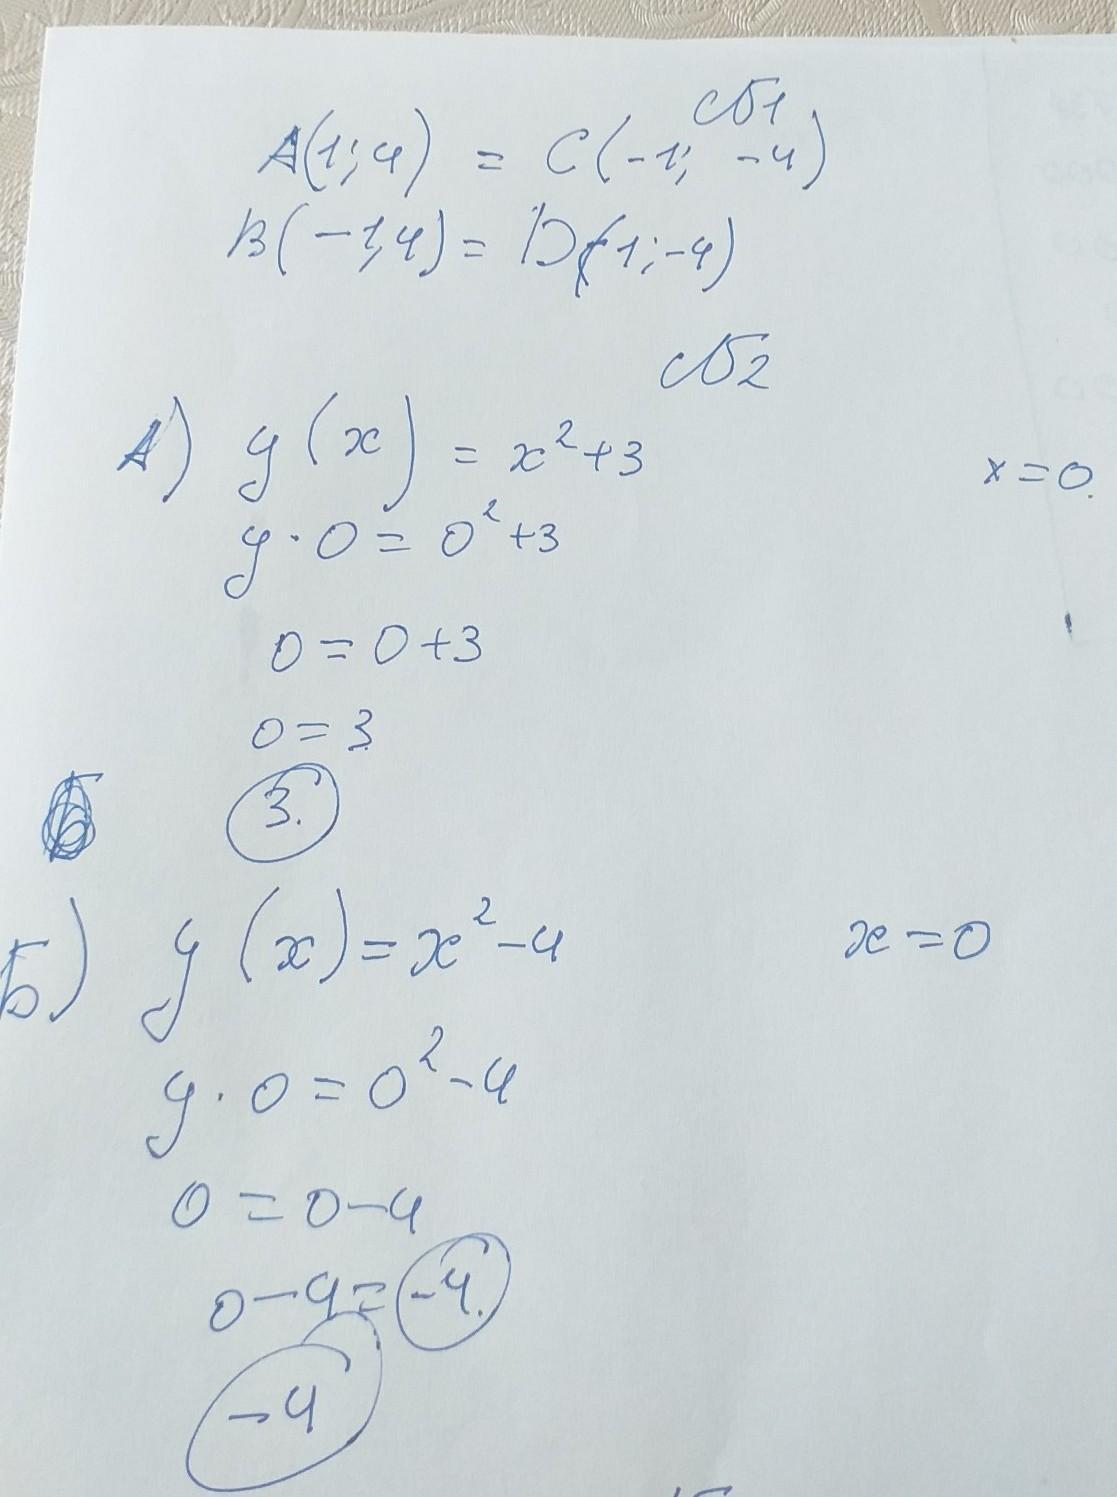 №1
A(1;4) = C(-1; -4)
B(-1;4) = D(1;-4)
№2
А) y(x) = x²+3 x=0.
y·0 = 0²+3
0 = 0+3
0 = 3
3.
Б) y(x) = x²-4 x=0
y·0 = 0²-4
0 = 0-4
0-4= -4.
-4